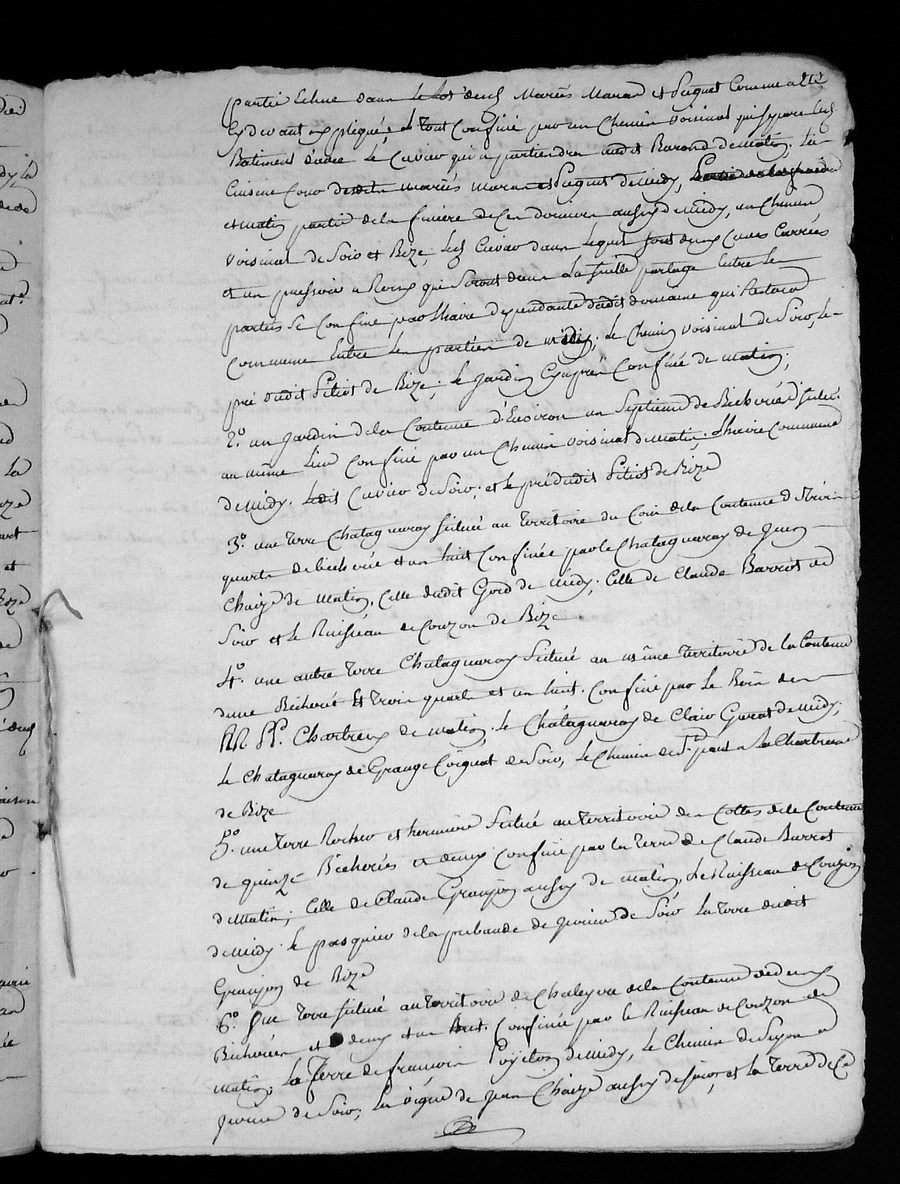 partie Echue dans le Lot desd. Mariés Maras et Piquet Comme a Eté
Cy devant expliquée, le tout Confiné par un Chemin voisinal qui separe les
Batiment d'avec le Cuvier qui apartiendra audit Barond de matin, La
Cuisine Cour desdits mariés Maras et Piquet de midy,
et matin partie de la finière de Ces derniers aussy de midy, un Chemin
voisinal de Soir et Bize, Les Cuvier dans lequel sont deux Cuves Carrées
et un pressoir a Reins qui seront dans La Suitte partagé Entre les
parties se Confine par l'haire dependante dudit domaine qui Restera
Commune Entre les parties de midy; le Chemin voisinal de Soir, le
pré dudit Pitiot de Bize; le Jardin Cyaprès Confiné de matin;
2.º un Jardin de la Contenue d'Environ un Septieme de Bicherée Situé
au même Lieu Confiné par un Chemin voisinal de Matin, L'haire Commune
de midy. Ledit Cuvier de Soir, et le pré dudit Pitiot de Bize
3.º une Terre Chataigneray Situé au Territoire du Coin de la Contenue d'Environ
quarts de bicherée et un huit Confinée par le Chataigneray de Jean
Chaize de Matin, Celle dudit Goid de midy, Celle de Claude Barriot de
Soir et le Ruisseau de Couzon de Bize
4.º une autre Terre Chataigneray Situé au même Territoire de la Contenue
dune Bicherée Et trois quarts et un huit. Confiné par le Bois des
RR. PP. Chartreux de matin, le Chataigneray de Clair Guerat de midy,
Le Chataigneray de Grange Coignet de Soir, le Chemin de St. paul a La Chartreuse
de Bize
5.º une Terre Rocher et hermière Située au Territoire des Cottes de la Contenue
de quinze Bicherées et demy Confiné par la Terre de Claude Barriot
de Matin, Celle de Claude Granjon aussy de matin, Le Ruisseau de Couzon
de midy. le pasquier de la prebande de Jurieu de Soir La Terre dudit
Granjon de Bize
6.º Une Terre Située au Territoire de Chaleyer de la Contenue de deux
Bicherées et demy et un huit. Confinée par le Ruisseau de Couzon de
matin, La Terre de francois Poyeton de midy, le Chemin de Lyon a
Jurieu de Soir, La vigne de Jean Chaize aussy de soir, et la Terre de Cé